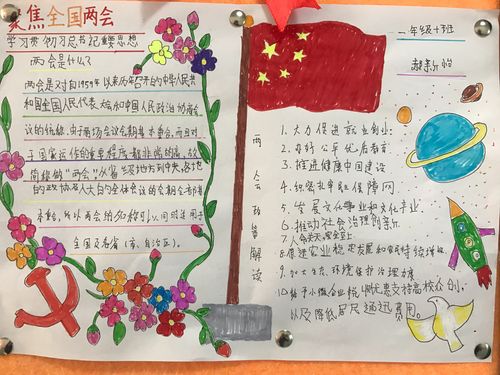 聚焦全国两会
学习贯彻习总书记重要思想
两会是什么?
两会是对自1959年以来历年召开的中华人民共
和国全国人民代表大会和中国人民政治协商会
议的统称。由于两场会议会期基本重合,而且对
于国家运作的重要程度都非常的高,故
简称做"两会".从省级地方到中央,各地
的政协及人大的全体会议的会期全部
重合,所以两会的名称可以同时适用于
全国及各省(市、自治区)。
两会政策解读
一年级十班
郝新怡
1.大力促进就业创业;
2.办好公平优质教育
3.推进健康中国建设
4.织密扎牢民生保障网
5.发展文化事业和文化产业
6.推动社会治理创新
7.
8.促进农业稳定发展和农民持续增收
9.加大生态环境保护治理力度
10.给予小微企业税收优惠支持高校众创,
以及降低居民通迅费用。